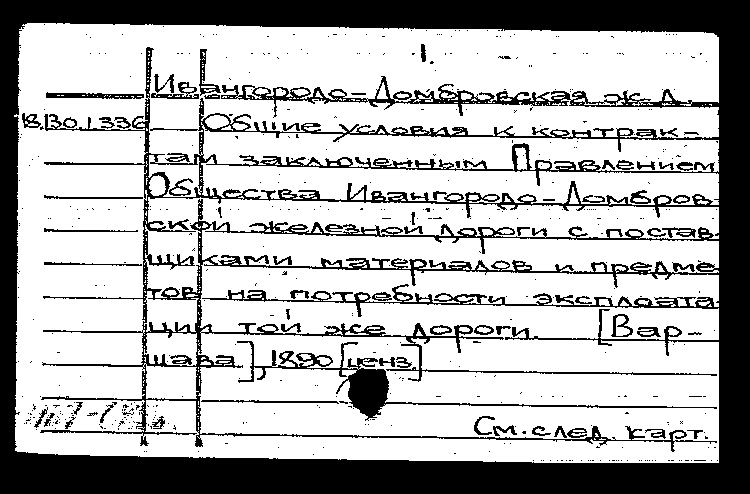 1.
Ивангородо-Домбровская ж.д.
18.130.1.336 Общие условия к контрак-
там заключенным Правлением
Общества Ивангородо-Домбров-
ской железной дороги с постав-
щиками материалов и предме-
тов на потребности эксплоата-
ции той же дороги. [Вар-
шава], 1890 [ценз.]
См. след. карт.